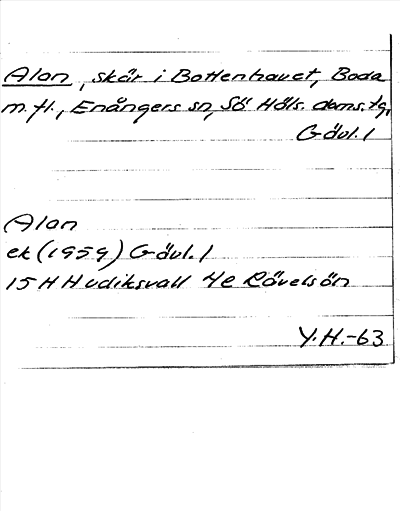 Alan, skär i Bottenhavet, Boda
m.fl., Enångers sn, Sö Häls. doms.tg,
Gävl. l
Alan
ek (1959) Gävl. l
15 H Hudiksvall 4e Rävelsön
Y.H.-63